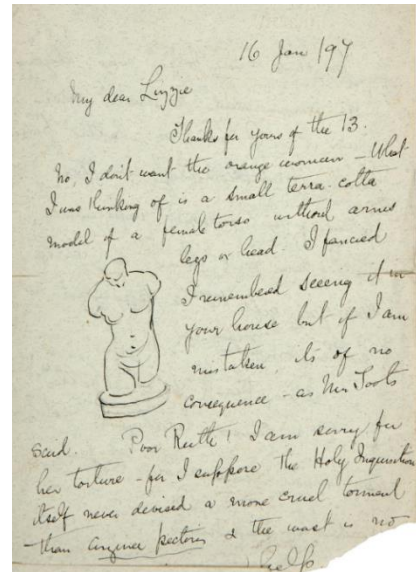 16 Jan /97
My dear Lizzie
Thanks for yours of the 13.
No, I don't want the orange woman – What
I was thinking of is a small terra-cotta
model of a female torso without arms
legs or head. I fancied
I remembered seeing it in
your house but if I am
mistaken, its of no
consequence – as Mr Toots
said. Poor Ruth! I am sorry for
her torture – for I suppose the Holy Inquisition
itself never devised a more cruel torment
than angina pectoris & the worst is no